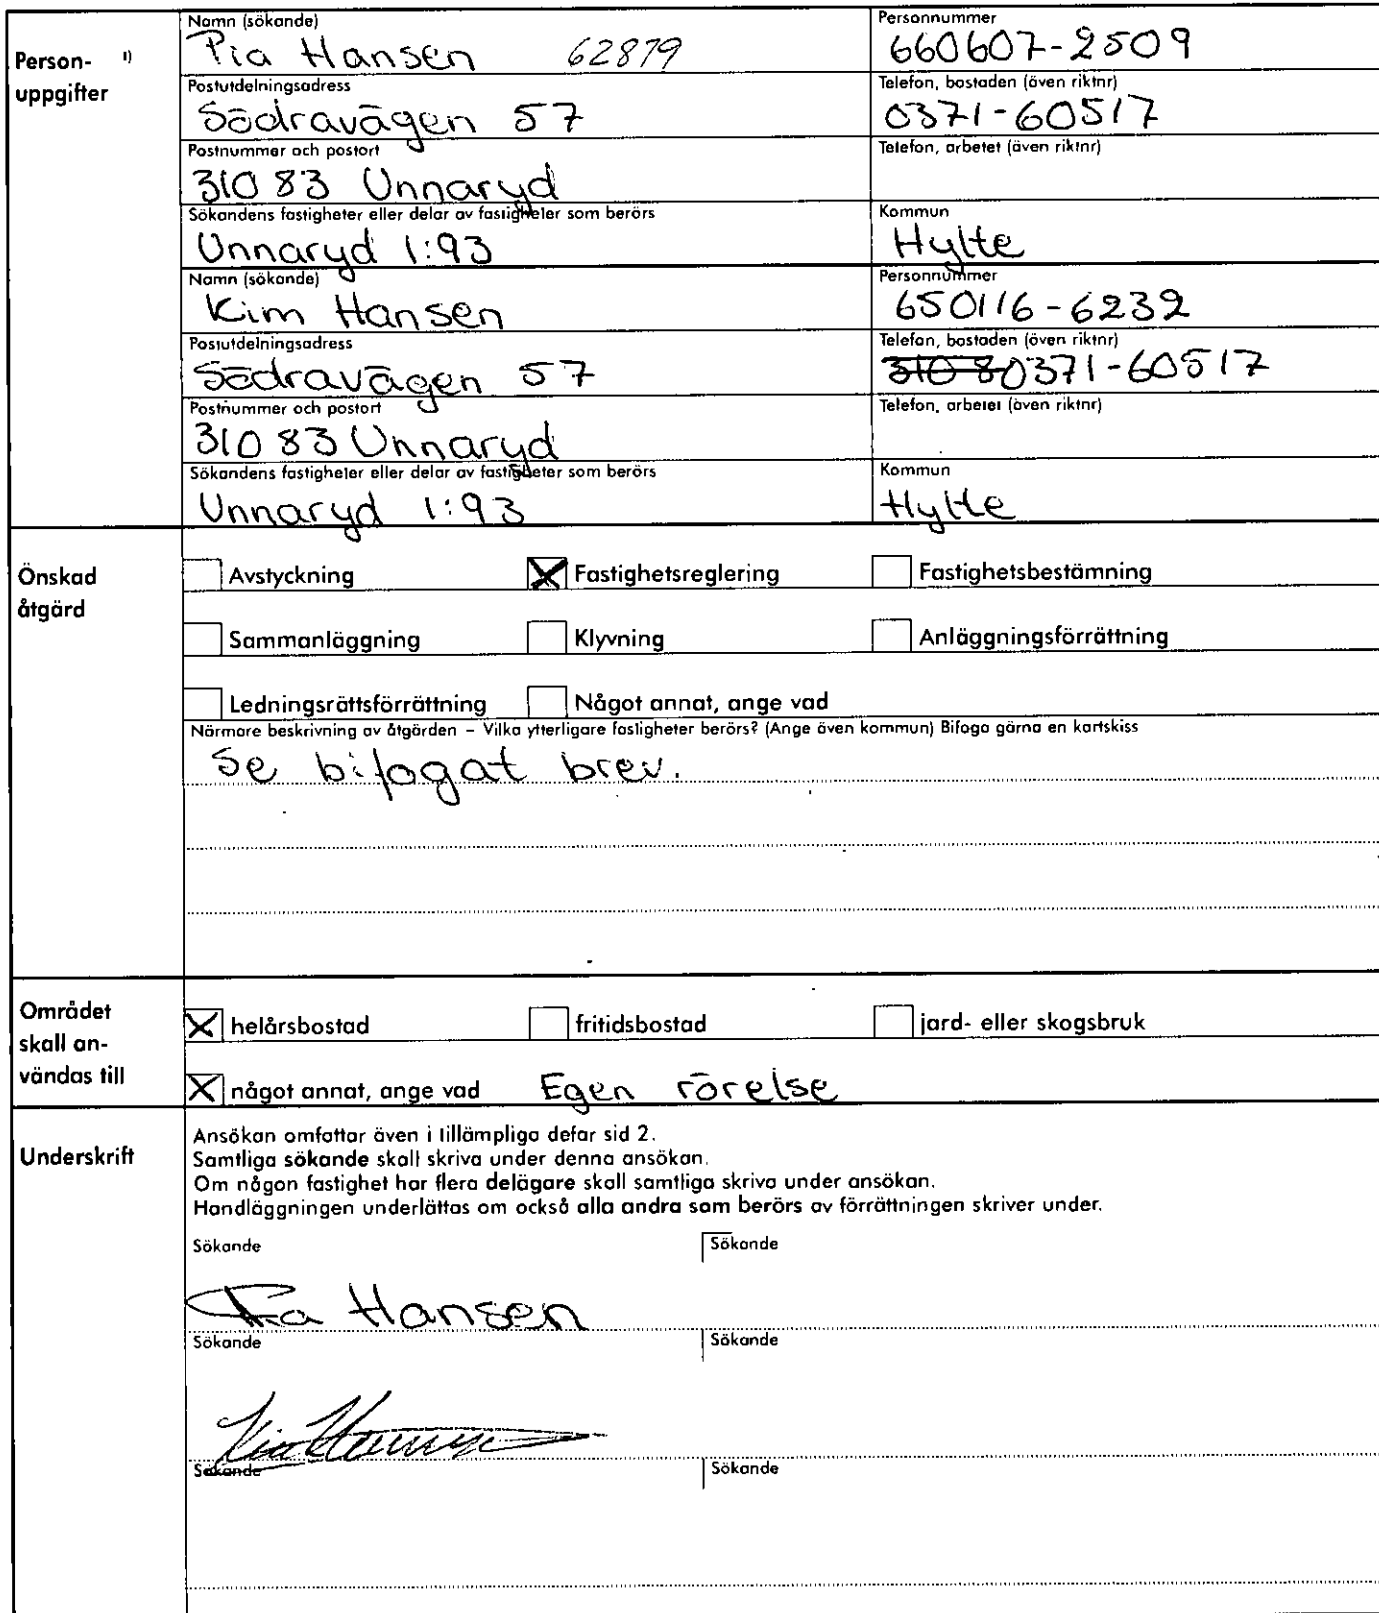 Person- 1)
uppgifter
Namn (sökande)
Pia Hansen 62879
Personnummer
660607-2509
Postutdelningsadress
Södravägen 57
Telefon, bostaden (även riktnr)
0371-60517
Postnummer och postort
310 83 Unnaryd
Telefon, arbetet (även riktnr)
Sökandens fastigheter eller delar av fastigheter som berörs
Unnaryd 1:93
Kommun
Hylte
Namn (sökande)
Kim Hansen
Personnummer
650116-6232
Postutdelningsadress
Södravägen 57
Telefon, bostaden (även riktnr)
310 8 0371-60517
Postnummer och postort
310 83 Unnaryd
Telefon, arbetet (även riktnr)
Sökandens fastigheter eller delar av fastigheter som berörs
Unnaryd 1:93
Kommun
Hylte
Önskad
åtgärd
Avstyckning
Fastighetsreglering
Fastighetsbestämning
Sammanläggning
Klyvning
Anläggningsförrättning
Ledningsrättsförrättning
Något annat, ange vad
Närmare beskrivning av åtgärden – Vilka ytterligare fastigheter berörs? (Ange även kommun) Bifoga gärna en kartskiss
Se bifogat brev.
Området
skall an-
vändas till
helårsbostad
fritidsbostad
jard- eller skogsbruk
något annat, ange vad Egen rörelse
Underskrift
Ansökan omfattar även i tillämpliga defar sid 2.
Samtliga sökande skall skriva under denna ansökan.
Om någon fastighet har flera delägare skall samtliga skriva under ansökan.
Handläggningen underlättas om också alla andra som berörs av förrättningen skriver under.
Sökande
Sökande
Pia Hansen
Sökande
Sökande
Kim Hansen
Sökande
Sökande